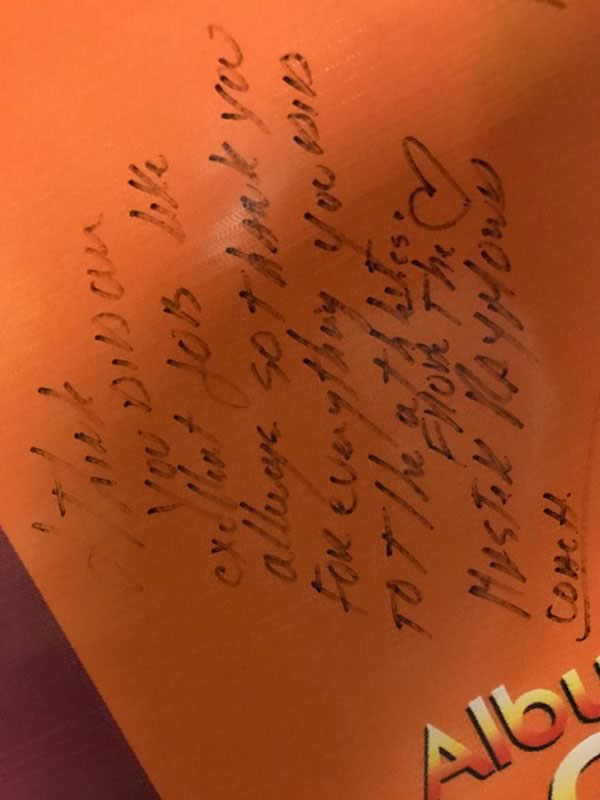 I think
you DID an
JOB like
always so thank you
FOR everything you DID
TO the athletes.
FROM The
MASTER RAYMOND
COACH
Albu